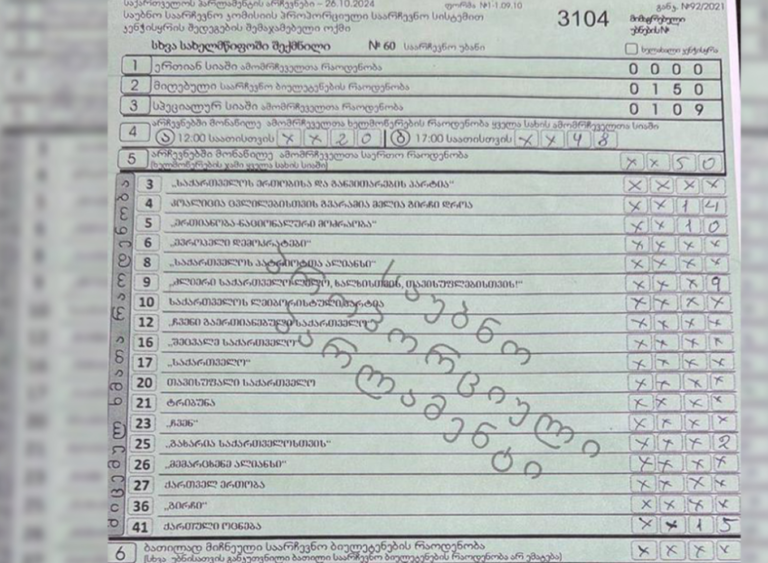 საქართველოს პარლამენტის არჩევნები – 26.10.2024 ფორმა №1-1.09.10 განკ. №92/2021
საუბნო საარჩევნო კომისიის პროპორციული საარჩევნო სისტემით 3104
კენჭისყრის შედეგების შემაჯამებელი ოქმი
სხვა სახელმწიფოში შექმნილი № 60 საარჩევნო უბანი
1 ერთიან სიაში ამომრჩეველთა რაოდენობა 0 0 0 0
2 მიღებული საარჩევნო ბიულეტენების რაოდენობა 0 1 5 0
3 სპეციალურ სიაში ამომრჩეველთა რაოდენობა 0 1 0 9
4 არჩევნებში მონაწილე ამომრჩეველთა ხელმოწერების რაოდენობა ყველა სახის ამომრჩეველთა სიაში
ა 12:00 საათისთვის x x 2 0 ბ 17:00 საათისთვის x x 4 8
5 არჩევნებში მონაწილე ამომრჩეველთა საერთო რაოდენობა x x 5 0
(ხელმოწერების ჯამი ყველა სახის სიაში)
3 „საქართველოს ერთობისა და განვითარების პარტია“ x x x x
4 კოალიცია ცვლილებისთვის გვარამია მელია გირჩი დროა x x 1 4
5 „ერთიანობა-ნაციონალური მოძრაობა“ x x 1 0
6 „ევროპული დემოკრატები“ x x x x
8 „საქართველოს პატრიოტთა ალიანსი“ x x x x
9 „ძლიერი საქართველო-ლელო, ხალხისთვის, თავისუფლებისთვის!“ x x x 9
10 საქართველოს ლეიბორისტული პარტია x x x x
12 „ჩვენი გაერთიანებული საქართველო“ x x x x
16 „შეცვალე საქართველო“ x x x x
17 „საქართველო“ x x x x
20 თავისუფალი საქართველო x x x x
21 ტრიბუნა x x x x
23 „ჩვენ“ x x x x
25 „გახარია საქართველოსთვის“ x x x 2
26 „მემარცხენე ალიანსი“ x x x x
27 ქართველ ერთობა x x x x
36 „გირჩი“ x x x x
41 ქართული ოცნება x x 1 5
6 ბათილად მიჩნეული საარჩევნო ბიულეტენების რაოდენობა x x x x
საუბნო
პროპორციული
პარლამენტი